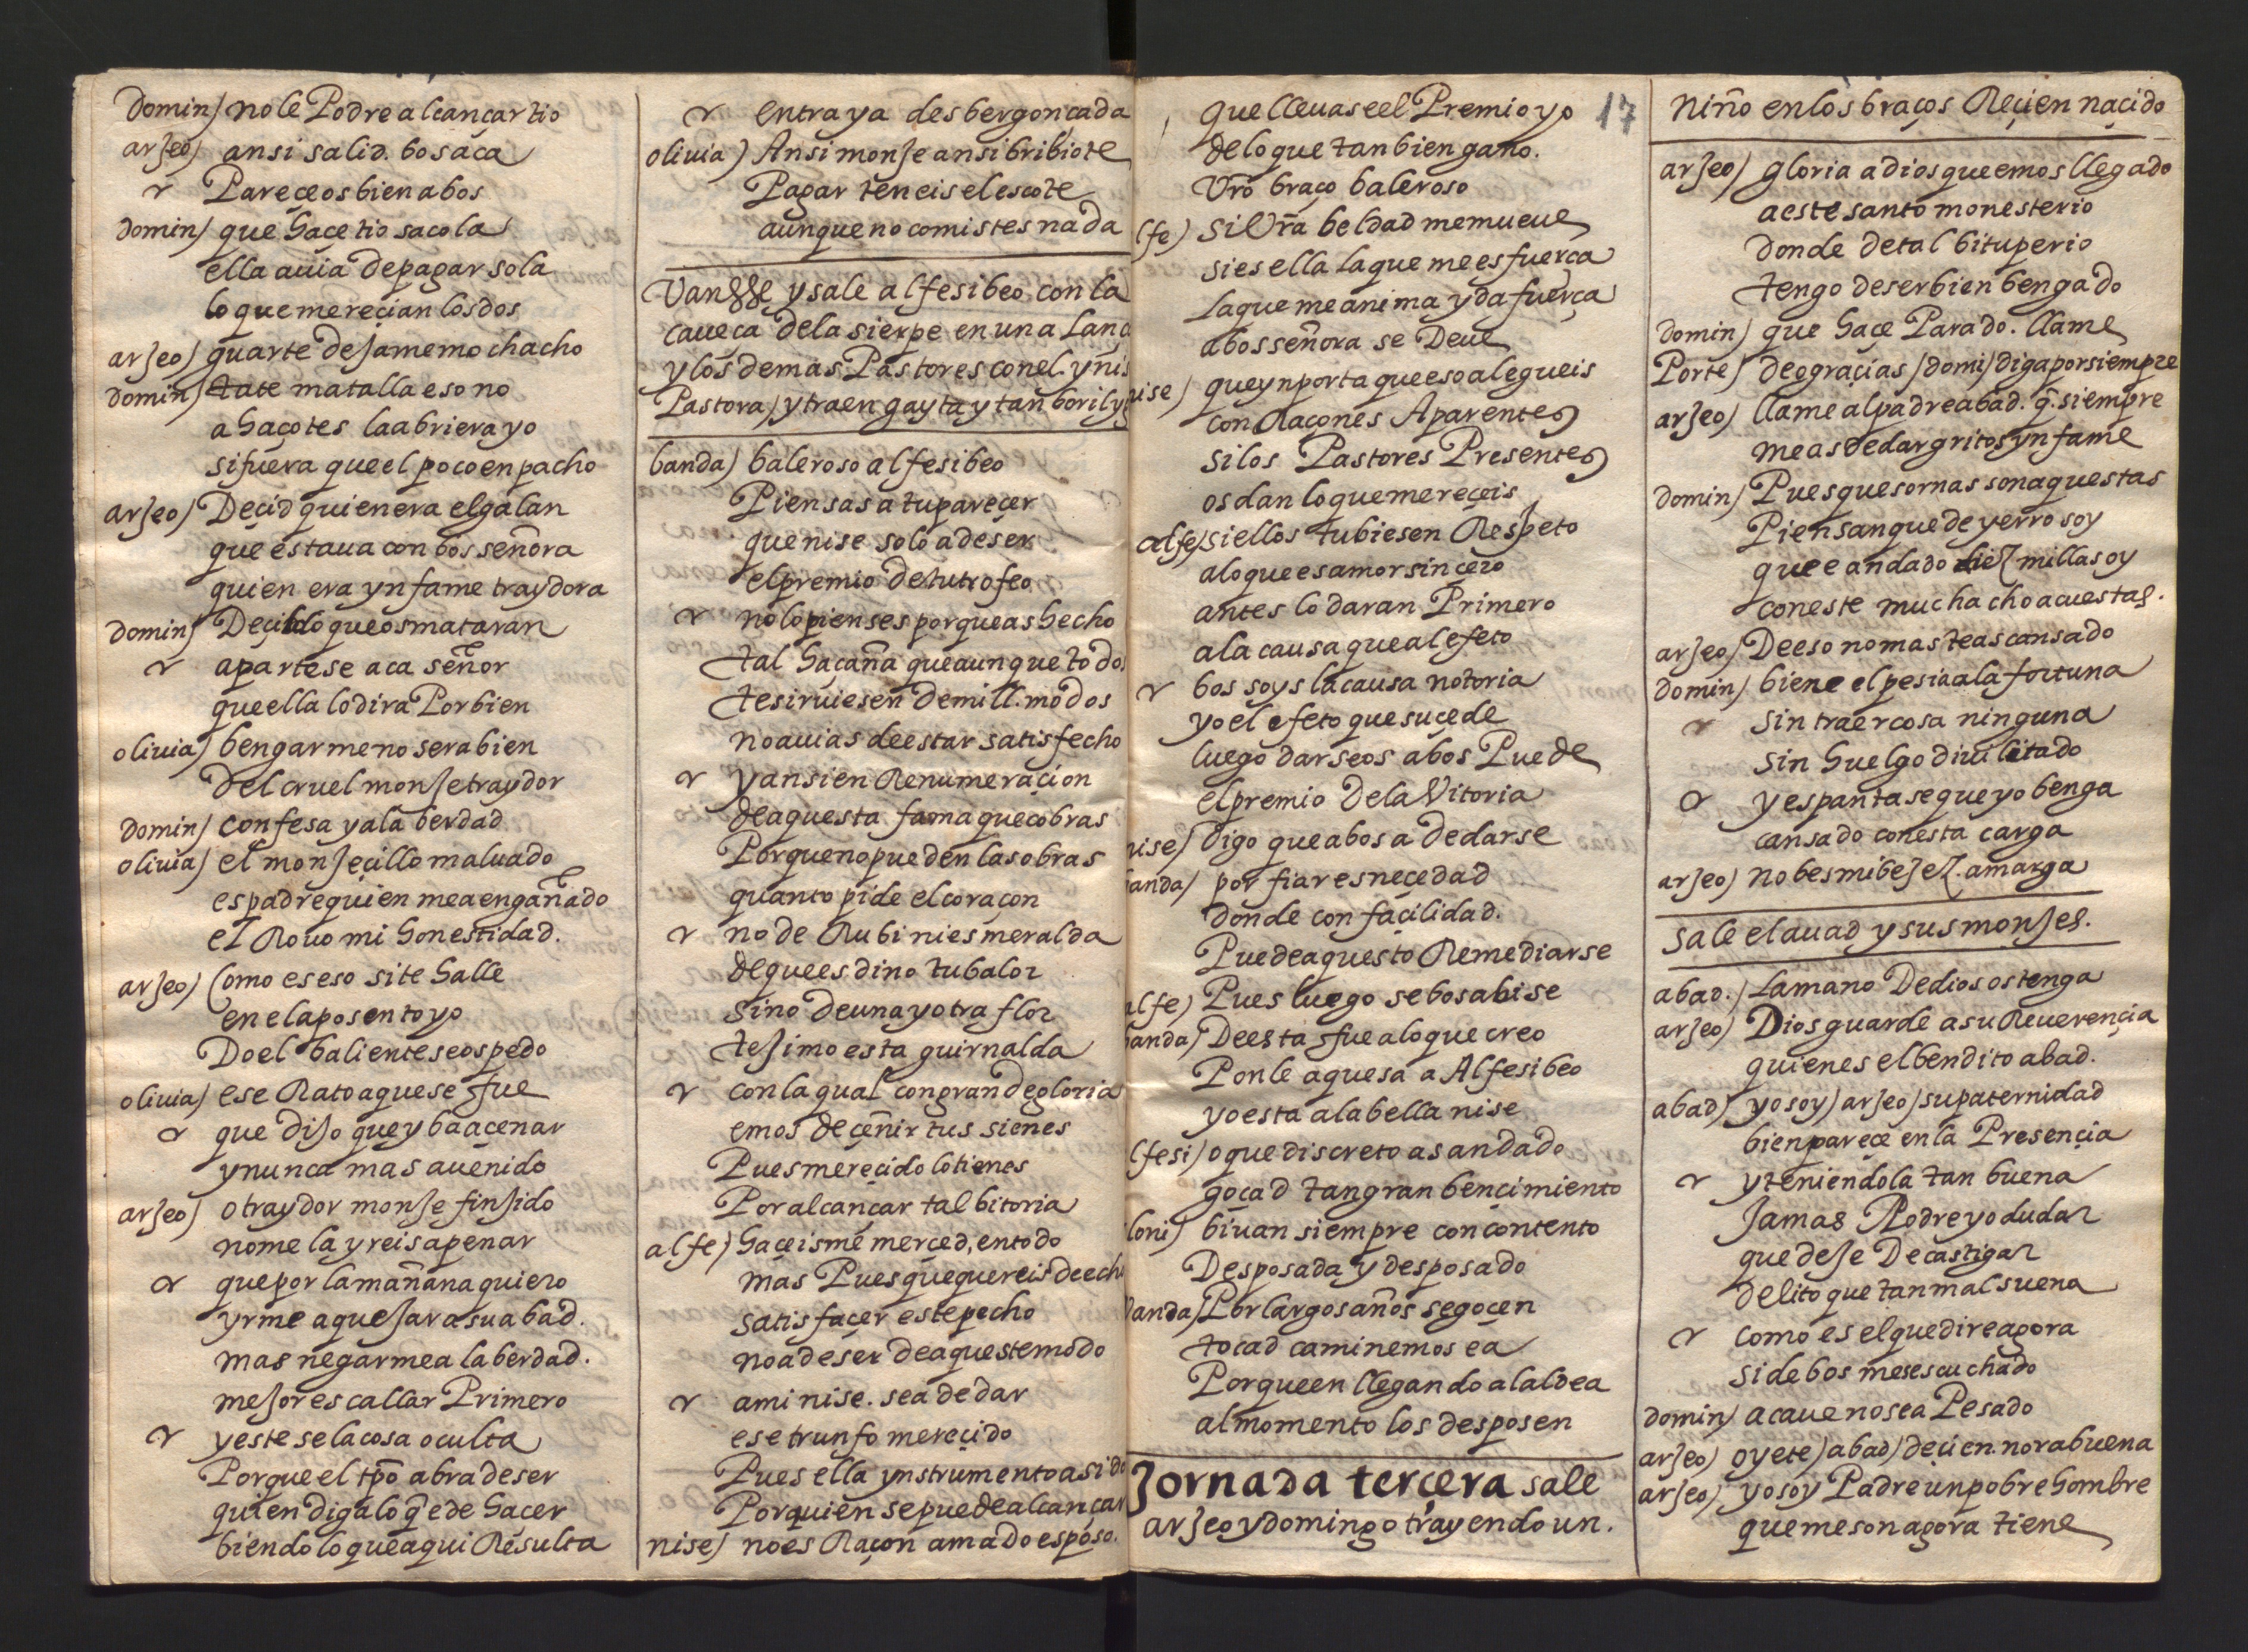 domin) no le Podre alcançar tio
arjeo) ansi salid. bos aca
Pareçe os bien a bos
domin) que haçe tio sacola
ella auia de pagar sola
lo que mereçian los dos
arjeo) guarte dejamemo chacho
domin) tate matalla eso no
a haçotes la abriera yo
si fuera que el poco enpacho
arjeo) Deçid quien era el galan
que estaua con bos señora
quien era ynfame traydora
domin) Deçildo que os mataran
apartese aca señor
que ella lo dira Por bien
oliuia) bengarme no sera bien
del cruel monje traydor
domin) confesa ya la berdad
oliuia) el monjeçillo maluado
es padre quien mea engañado
el Rouo mi honestidad.
arjeo) Como es eso si te halle
en el aposento yo
Do el baliente se ospedo
oliuia) ese Rato aque se fue
que dijo que yba a çenar
y nunca mas a uenido
arjeo) o traydor monje finjido
no me la yreis a penar
que por la mañana quiero
yrme a quejar a su abad.
mas negarme a la berdad.
mejor es callar Primero
y este se la cosa oculta
Porque el tpo abra de ser
quien diga lo q̃ e de haçer
biendo lo que aqui Resulta
entra ya desbergonçada
oliuia) Ansi monje ansi bribiote
Pagar teneis el escote
aunque no comistes nada
Vansse y sale alfesibeo con la
caueça de la sierpe en una Lanç
y los demas Pastores con el. y nis
Pastora) y traen gayta y tanboril y
banda) baleroso alfesibeo
Piensas a tu pareçer
que nise solo a de ser
el premio de tu trofeo
no lo pienses porque as hecho
tal haçaña que aunque todos
te siruiesen de mill. modos
no auias de estar satisfecho
y ansi en Renumeraçion
de aquesta fama que cobras
Porque no pueden las obras
quanto pide el coraçon
no de Rubi ni esmeralda
de que es dino tu balor
sino de una y otra flor
tejimo esta guirnalda
con la qual con grande gloria
emos de çeñir tus sienes
Pues mereçido lo tienes
Por alcançar tal bitoria
alfe) haçeisme merçed, en todo
mas Pues que quereis de ech
satisfaçer este pecho
no a de ser de aqueste modo
a mi nise. sea de dar
ese trunfo mereçido
Pues ella ynstrumento a sido
Por quien se puede alcançar
nise) no es Raçon amado esposo.
17
que lleuase el Premio yo
de lo que tan bien gano.
Vro braço baleroso
lfe) si Vra beldad me mueue
si es ella la que me esfuerça
la que me anima y da fuerça
a bos señora se Deue
ise) que ynporta que eso alegueis
con Raçones Aparentes
si los Pastores Presentes
os dan lo que mereçeis
alfe) si ellos tubiesen Respeto
a lo que es amor sinçero
antes lo daran Primero
a la causa que al efeto
bos soys la causa notoria
yo el efeto que suçede
luego darseos a bos Puede
el premio de la Vitoria
nise) digo que a bos a de darse
anda) porfiar es neçedad
donde con façilidad.
Puede aquesto Remediarse
alfe) Pues luego se bos abise
anda) De esta fue a lo que creo
Ponle aquesa a Alfesibeo
yo esta a la bella nise
lfesi) o que discreto as andado
goçad tan gran bençimiento
loni) biuan siempre con contento
Desposada y desposado
anda) Por largos años se goçen
tocad caminemos ea
Porque en llegando al aldea
al momento los desposen
Jornada terçera sale
arjeo y domingo trayendo un.
niño en los braços Reçien naçido
arjeo) gloria a dios que emos llegado
a este santo monesterio
donde de tal bituperio
tengo de ser bien bengado
domin) que haçe Parado. llame
Porte) deo graçias / domi) diga por siempre
arjeo) llame al padre abad. q̃. siempre
me as de dar gritos ynfame
domin) Pues que sornas son aquestas
Piensan que de yerro soy
que e andado diez millas oy
con este muchacho a cuestas.
arjeo) De eso no mas te as cansado
domin) biene el pesia a la fortuna
sin traer cosa ninguna
sin huelgo diuilitado
y espantase que yo benga
cansado con esta carga
arjeo) no bes mi bejez. amarga
sale el auad y sus monjes.
abad.) La mano De dios os tenga
arjeo) Dios guarde a su Reuerençia
quien es el bendito abad.
abad) yo soy) arjeo) su paternidad
bien pareçe en la Presençia
y teniendola tan buena
Jamas Podre yo dudar
que deje De castigar
delito que tan mal suena
como es el que dire agora
si de bos mes escuchado
domin) acaue no sea Pesado
arjeo) oyete) abad) deçi en norabuena
arjeo) yo soy Padre un pobre hombre
que meson agora tiene